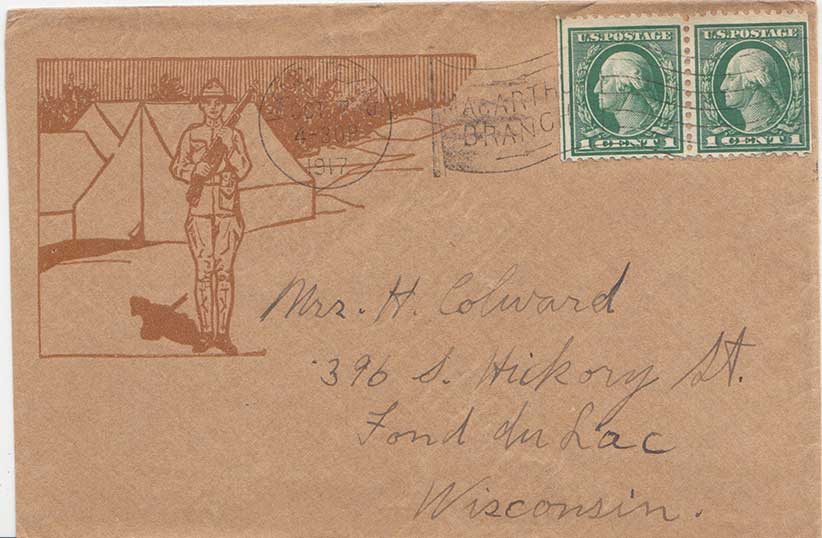 U.S. POSTAGE
1 CENT 1
U.S. POSTAGE
1 CENT 1
OCT 7
4-30P
1917
MACARTHUR
BRANCH
Mrs. H. Colward
396 S. Hickory St.
Fond du Lac
Wisconsin.